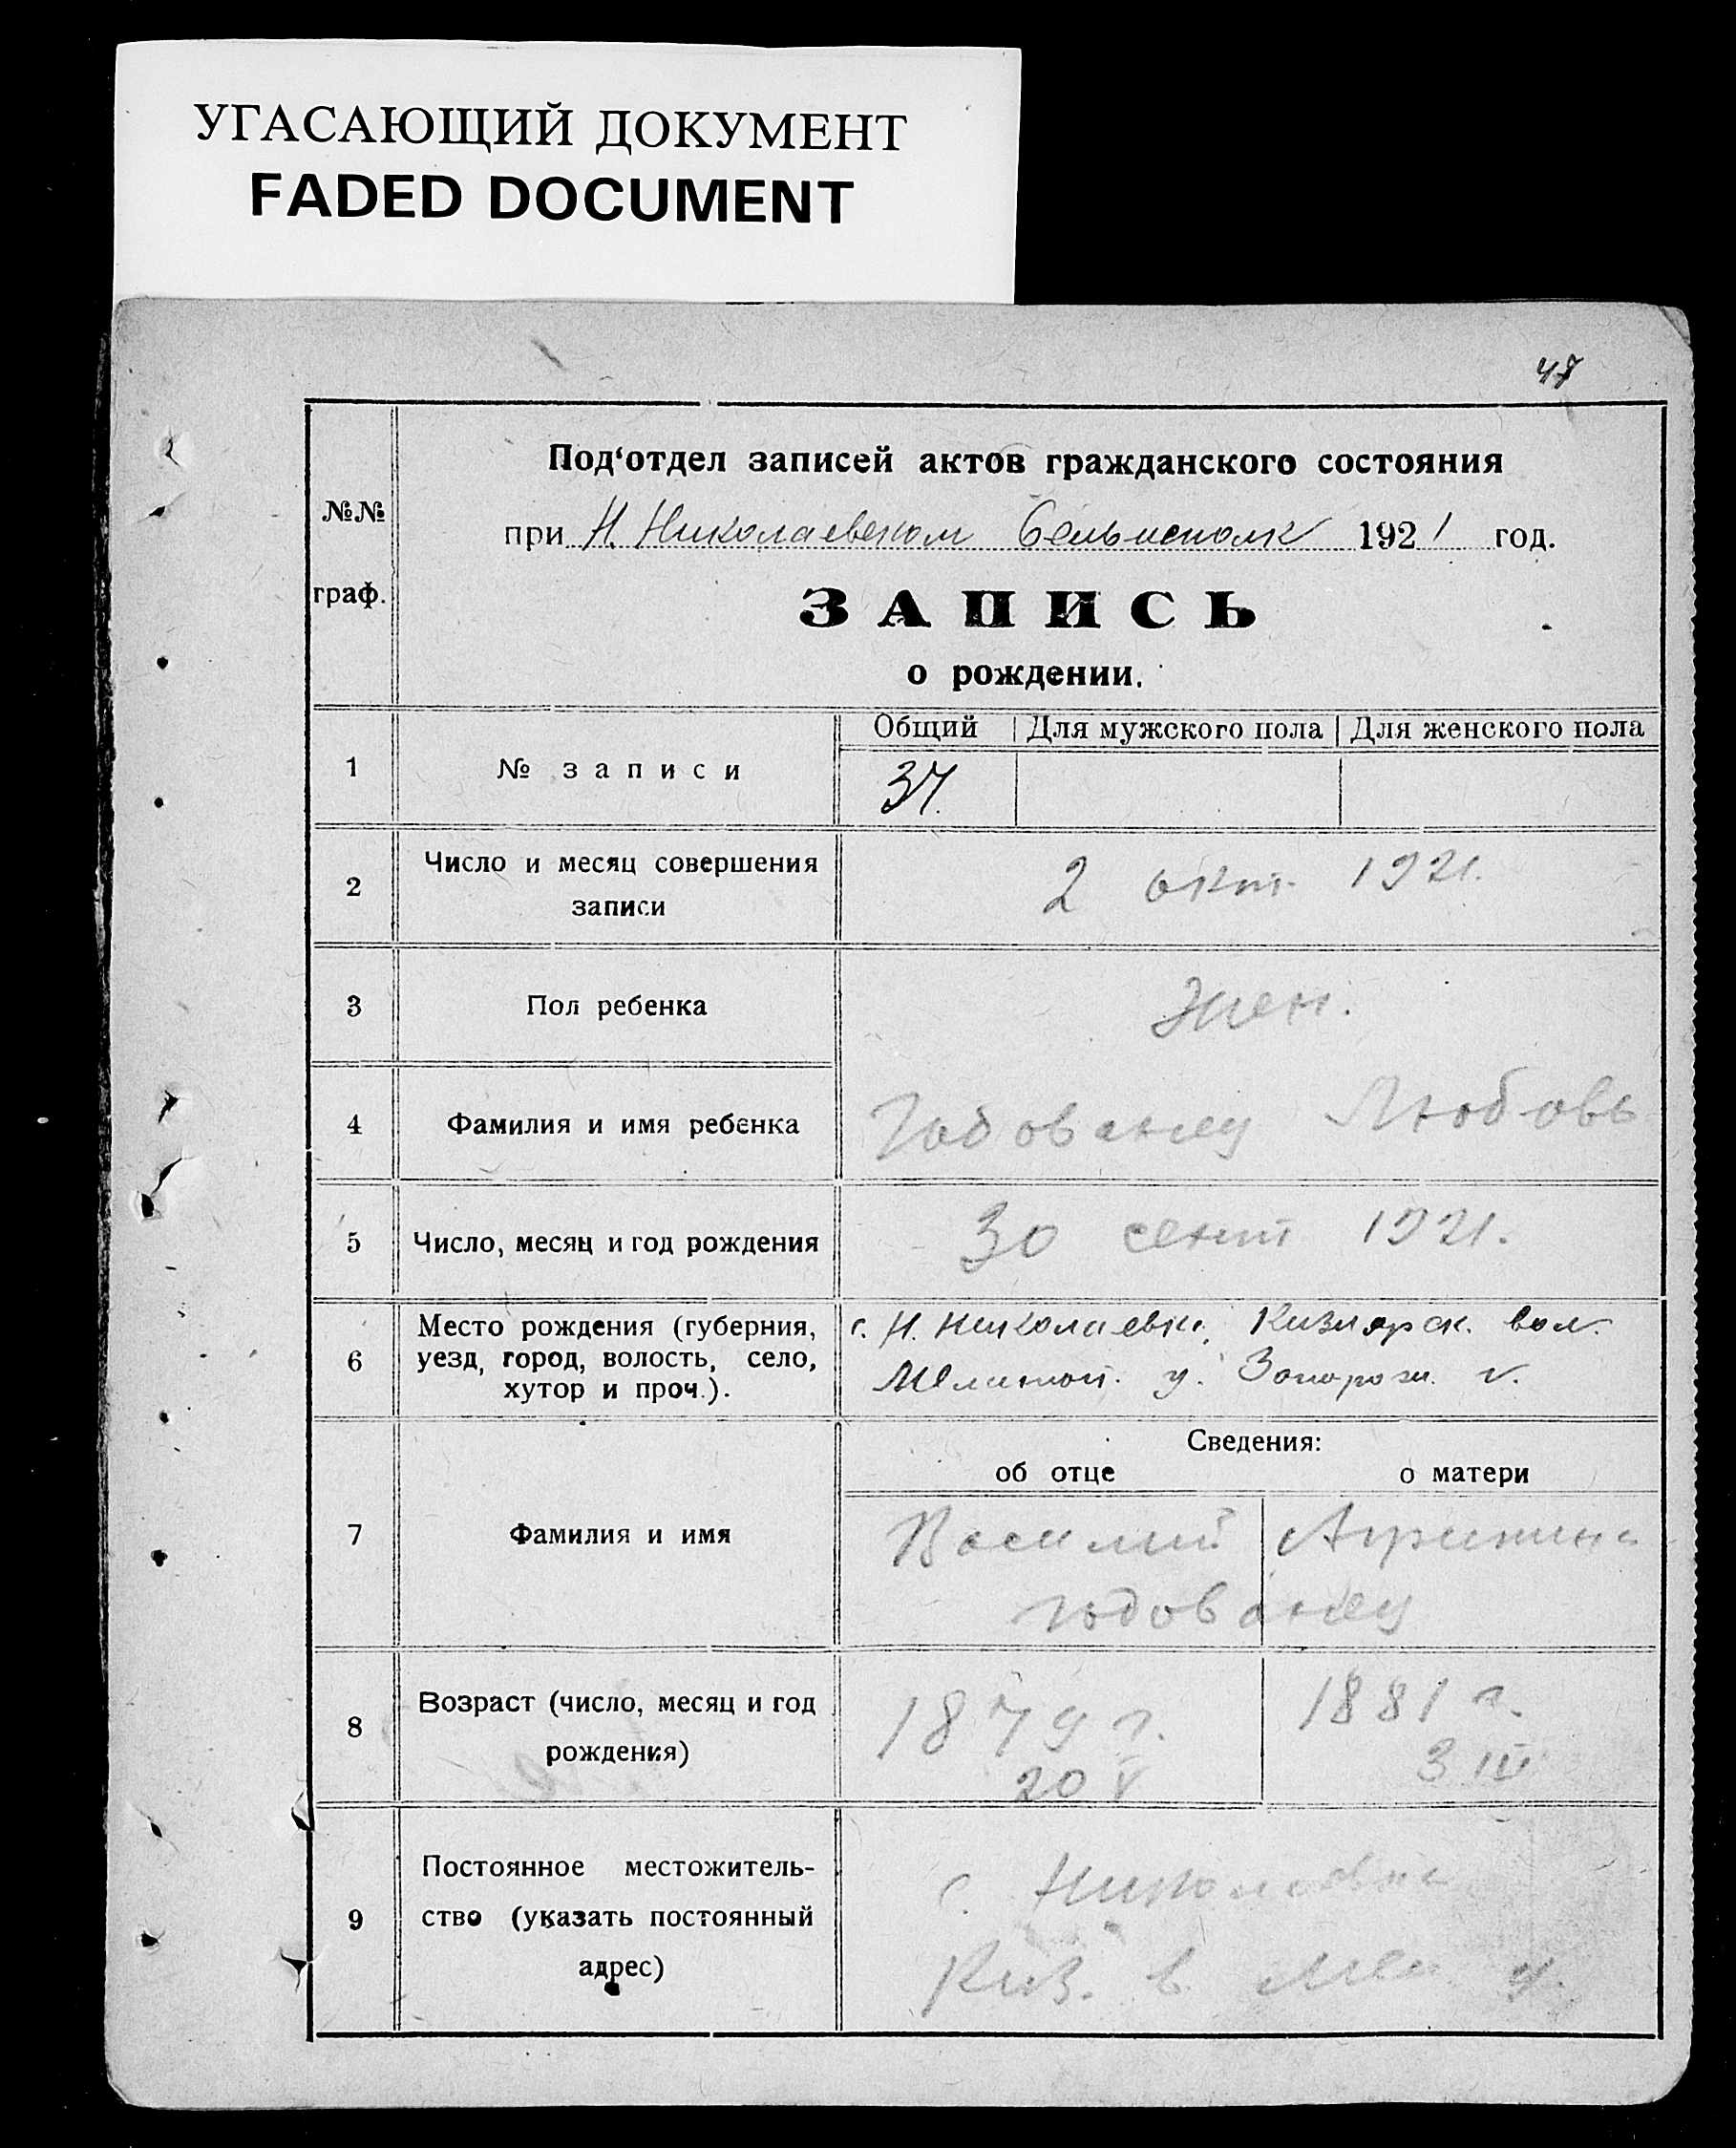 УГАСАЮЩИЙ ДОКУМЕНТ
FADED DOCUMENT
№№
граф.
Под‘отдел записей актов гражданского состояния
при Н. Николаевском Сельисполк 1921 год.
ЗАПИСЬ
о рождении.
Общий Для мужского пола Для женского пола
1 № записи 37
2 Число и месяц совершения
записи
2 окт. 1921.
3 Пол ребенка Жен.
4 Фамилия и имя ребенка Любовь
5 Число, месяц и год рождения 30 сент 1921.
6 Место рождения (губерния,
уезд, город, волость, село,
хутор и проч.).
с. Н. Николаевки, Кизиярск. вол.
Мелитоп. у. Запорож. г.
Сведения:
об отце о матери
7 Фамилия и имя
Василий Агрипина
8 Возраст (число, месяц и год
рождения)
1879 г. 1881 г.
20 V 3 III
9 Постоянное местожитель-
ство (указать постоянный
адрес)
с. Николаевка
Киз. в. Мел. у.